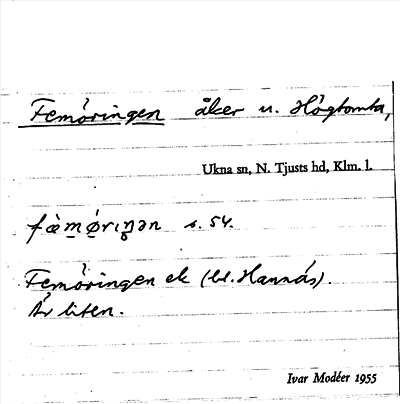 Femöringen åker u. Högtomta,
Ukna sn, N. Tjusts hd, Klm. l.
fæ̀mø̀rɩŋən s. 54.
Femöringen ek (bl. Hannäs).
Är liten.
Ivar Modéer 1955